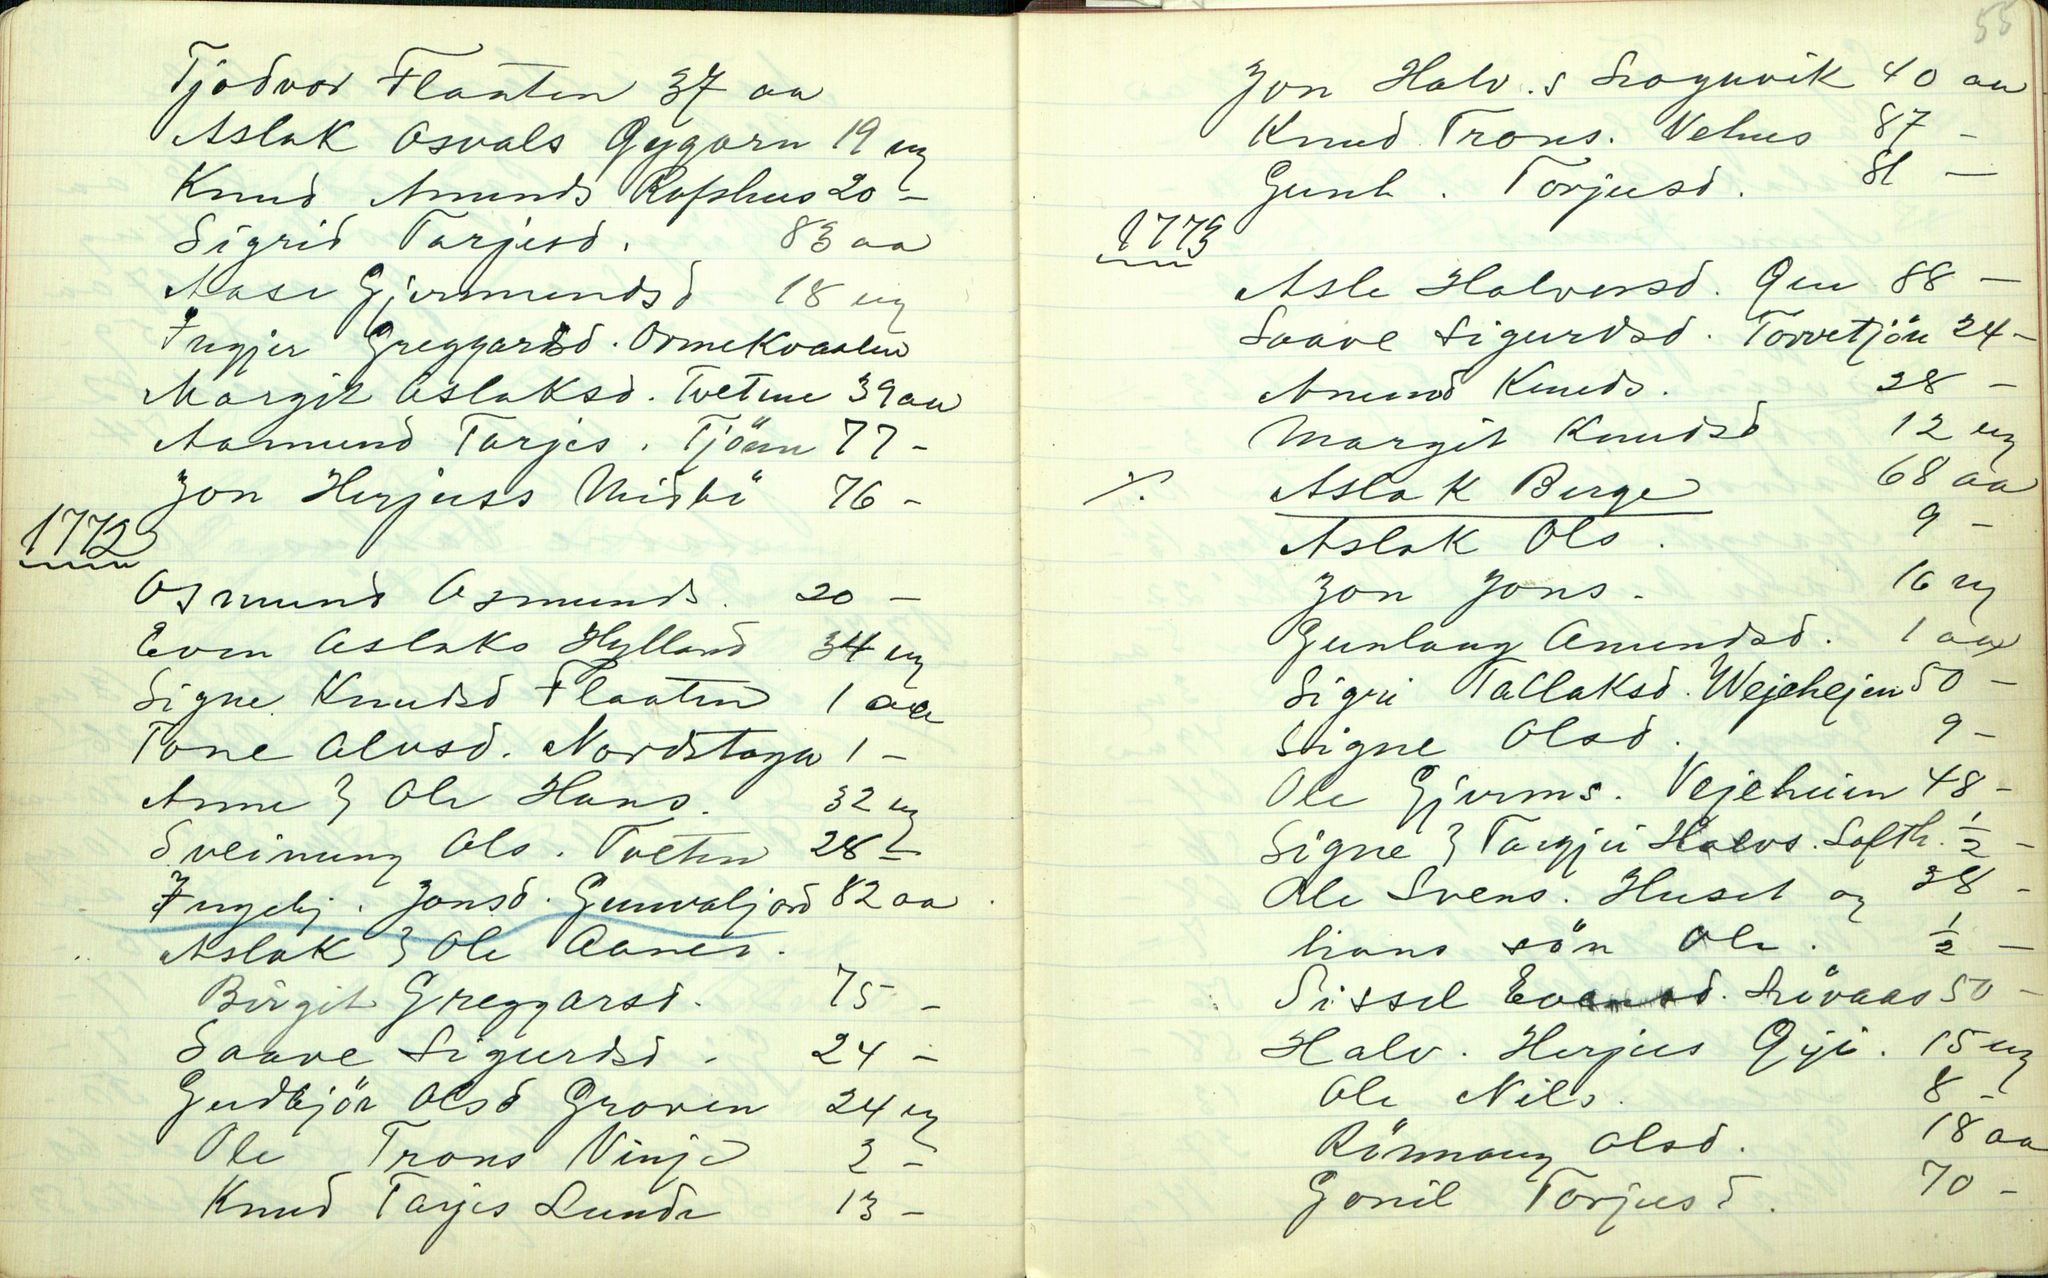 Tjodvor Flaaten 37 aa
Aslak Osvals Gygarn 19 ug
Knud Amunds Rofshus 20 –
Sigrid Tarjesd. 83 aa
Aase Gjermundsd 18 ug
Ingjer Greggarsd. Ormekvaalen
Margit Aslaksd. Tveten 39 aa
Aamund Tarjes. Tjönn 77 –
Jon Herjuss Midbö 76 –
1772
Osmund Osmunds. 20 –
Even Aslaks Hylland 34 ug
Signe Knudsd Flaaten 1 aa
Tone Alvsd. Nordstoga 1 –
Anne } Ole Hans. 32 ug
Sveinung Ols. Tveten 28 –
Ingebj. Jonsd. Gunvaljord 82 aa.
Aslak } Ole Aanes.
Birgit Greggarsd. 75 –
Saave Sigurdsd. 24 –
Gudbjör Olsd Groven 24 ug
Ole Trons Vinje 2 –
Knud Tarjes Lunde 13 –
55
Jon Halv.s 40 aa
Knud Trons. Vehus 87 –
Gunh. Torjusd. 81 –
1773
Asle Halvorsd. 88 –
Saave Sigurdsd. Torvetjön 24 –
Amund Knuds. 28 –
Margit Knudsd 12 ug
٪ Aslak Berge 68 aa
Aslak Ols. 9 –
Jon Jons. 16 ug
Gunlaug Amundsd. 1 aa
Sigri Tallaksd. Wejehejen 50 –
Signe Olsd. 9 –
Ole Gjerms. Vejeheien 48 –
Signe } Targjei Halvs. Lofth. ½ –
Ole Svens. Huset og 38 –
hans sön Ole. ½ –
Sissel Evensd. 50 –
Halv. Herjus 15 ug
Ole Nils. 8 –
Rönnaug Olsd. 18 aa
Gonil Torjusd. 70 –